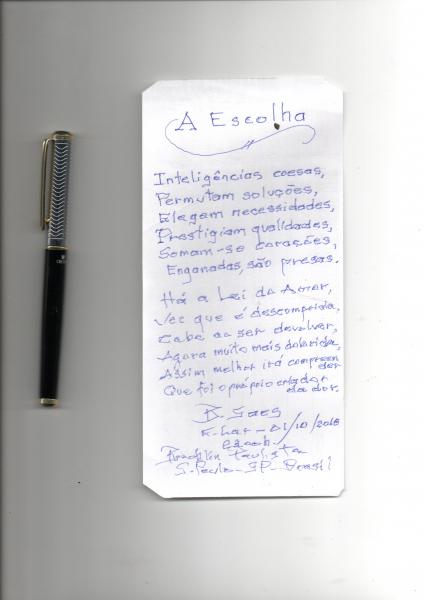 A Escolha
Inteligências coesas,
Permutam soluções,
Elegem necessidades,
Prestigiam qualidades,
Somam-se corações,
Enganadas, são presas.
Há a Lei do Amor,
Vez que é descomprida,
Cabe ao ser devolver,
Agora muito mais dolorida,
Assim melhor irá compreen
der
Que foi o próprio criador
da dor.
B. Goes
01/10/2018
Paulista
S. Paulo - SP - Brasil